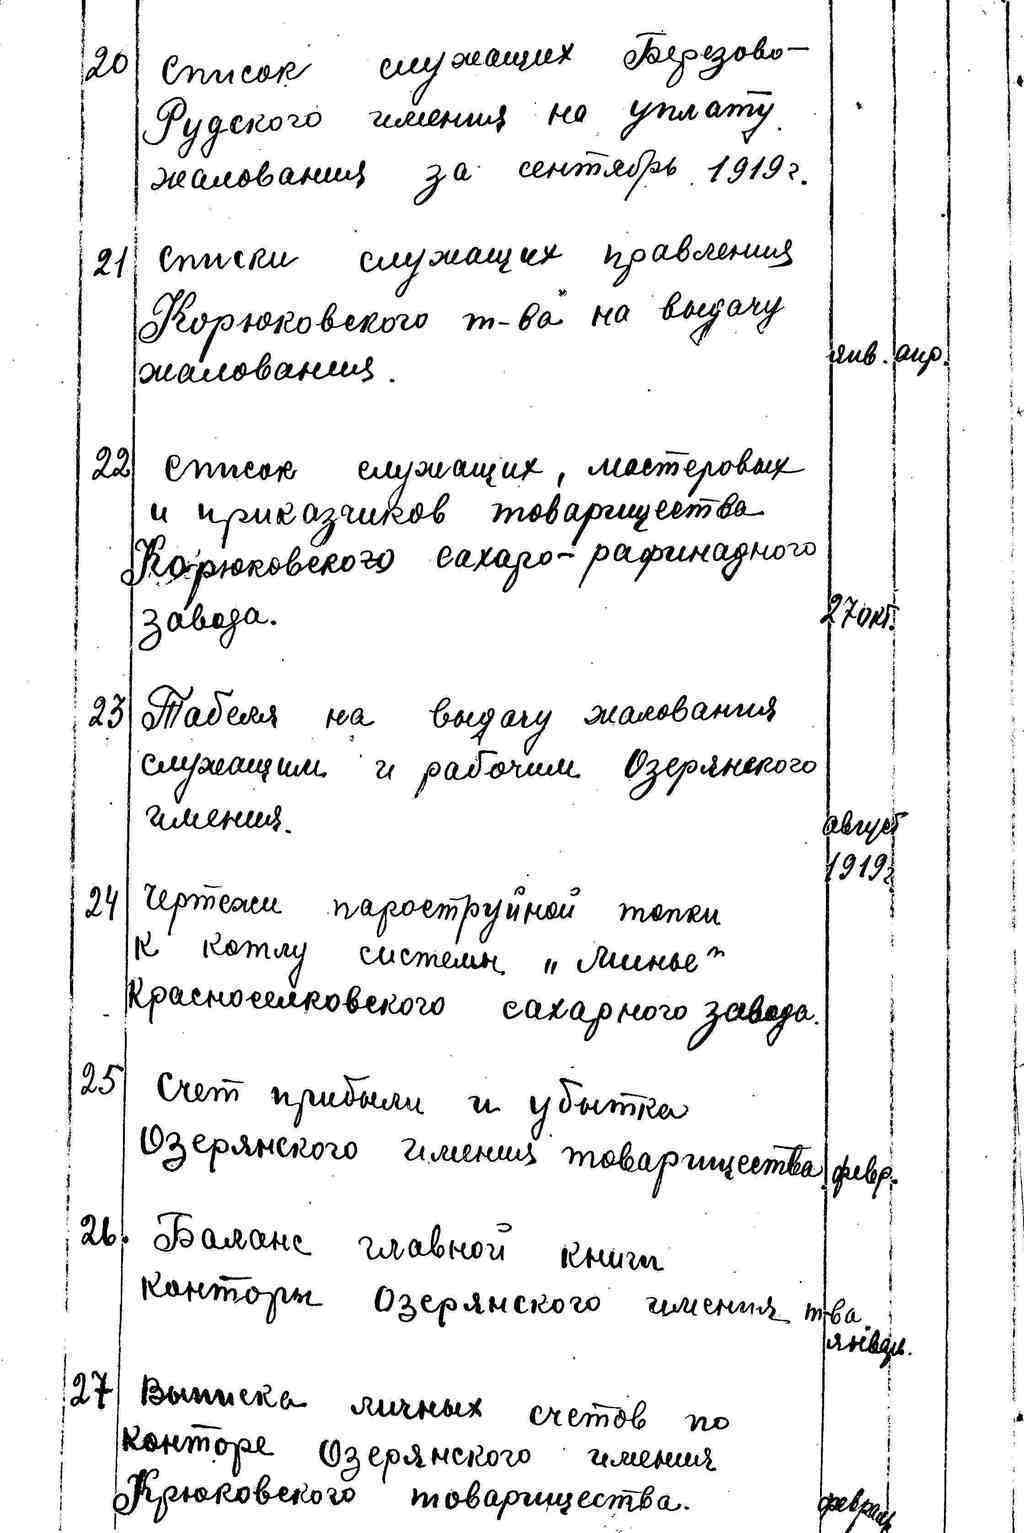 20 Список служащих Березово-
Рудского имения на уплату
жалования за сентябрь 1919 г.
21 Списки служащих правления
Корюковского т-ва на выдачу
жалования. янв. апр.
22 Список служащих, мастеровых
и приказчиков товарищества
Корюковского сахаро-рафинадного
завода. 27 окт.
23 Табеля на выдачу жалования
служащим и рабочим Озерянского
имения. август
1919 г
24 Чертежи пароструйной топки
к котлу системы „Минье"
Красноселковского сахарного завода.
25 Счет прибыли и убытка
Озерянского имения товарищества. февр.
26. Баланс главной книги
конторы Озерянского имения т-ва.
январ.
27 Выписка личных счетов по
конторе Озерянского имения
Крюковского товарищества. февраль